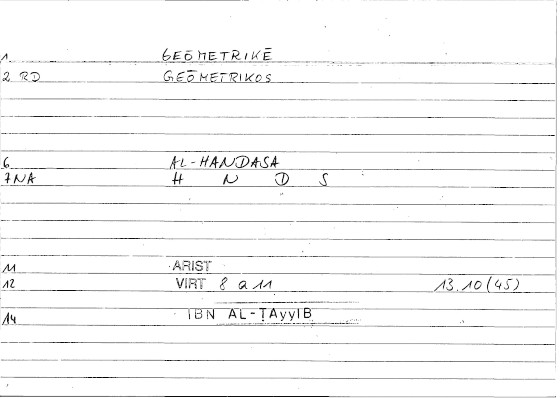 1 GEŌMETRIKĒ
2 RD GEŌMETRIKOS
6 AL-HANDASA
7NA H N D S
11 ARIST
12 VIRT 8 a 11 13.10(45)
14 IBN AL-ṬAyyIB